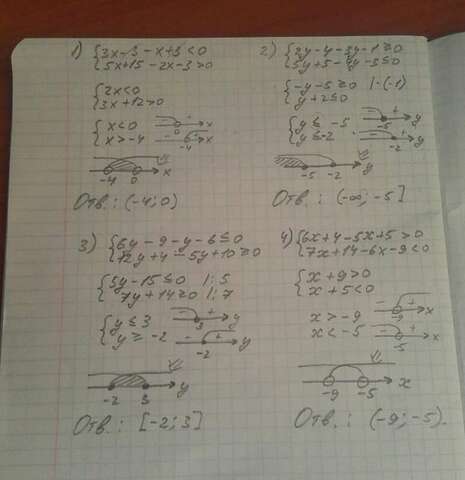 1) {3x-3-x+3<0
{5x+15-2x-3>0
{2x<0
{3x+12>0
{x<0
{x>-4
- + 0 x
- + -4 x
-4 0 x
Отв.: (-4; 0)
2) {2y-4-3y-1≥0
{5y+5-4y-3≤0
{-y-5≥0 |·(-1)
{y+2≤0
{y≤-5
{y≤-2
- + -5 y
- + -2 y
-5 -2 y
Отв.: (-∞; -5]
3) {6y-9-y-6≤0
{12y+4-5y+10≥0
{5y-15≤0 |:5
{7y+14≥0 |:7
{y≤3
{y≥-2
- + 3 y
- + -2 y
-2 3 y
Отв.: [-2; 3]
4) {6x+4-5x+5>0
{7x+14-6x-9<0
{x+9>0
{x+5<0
x>-9
x<-5
- + -9 x
- + -5 x
-9 -5 x
Отв.: (-9; -5).